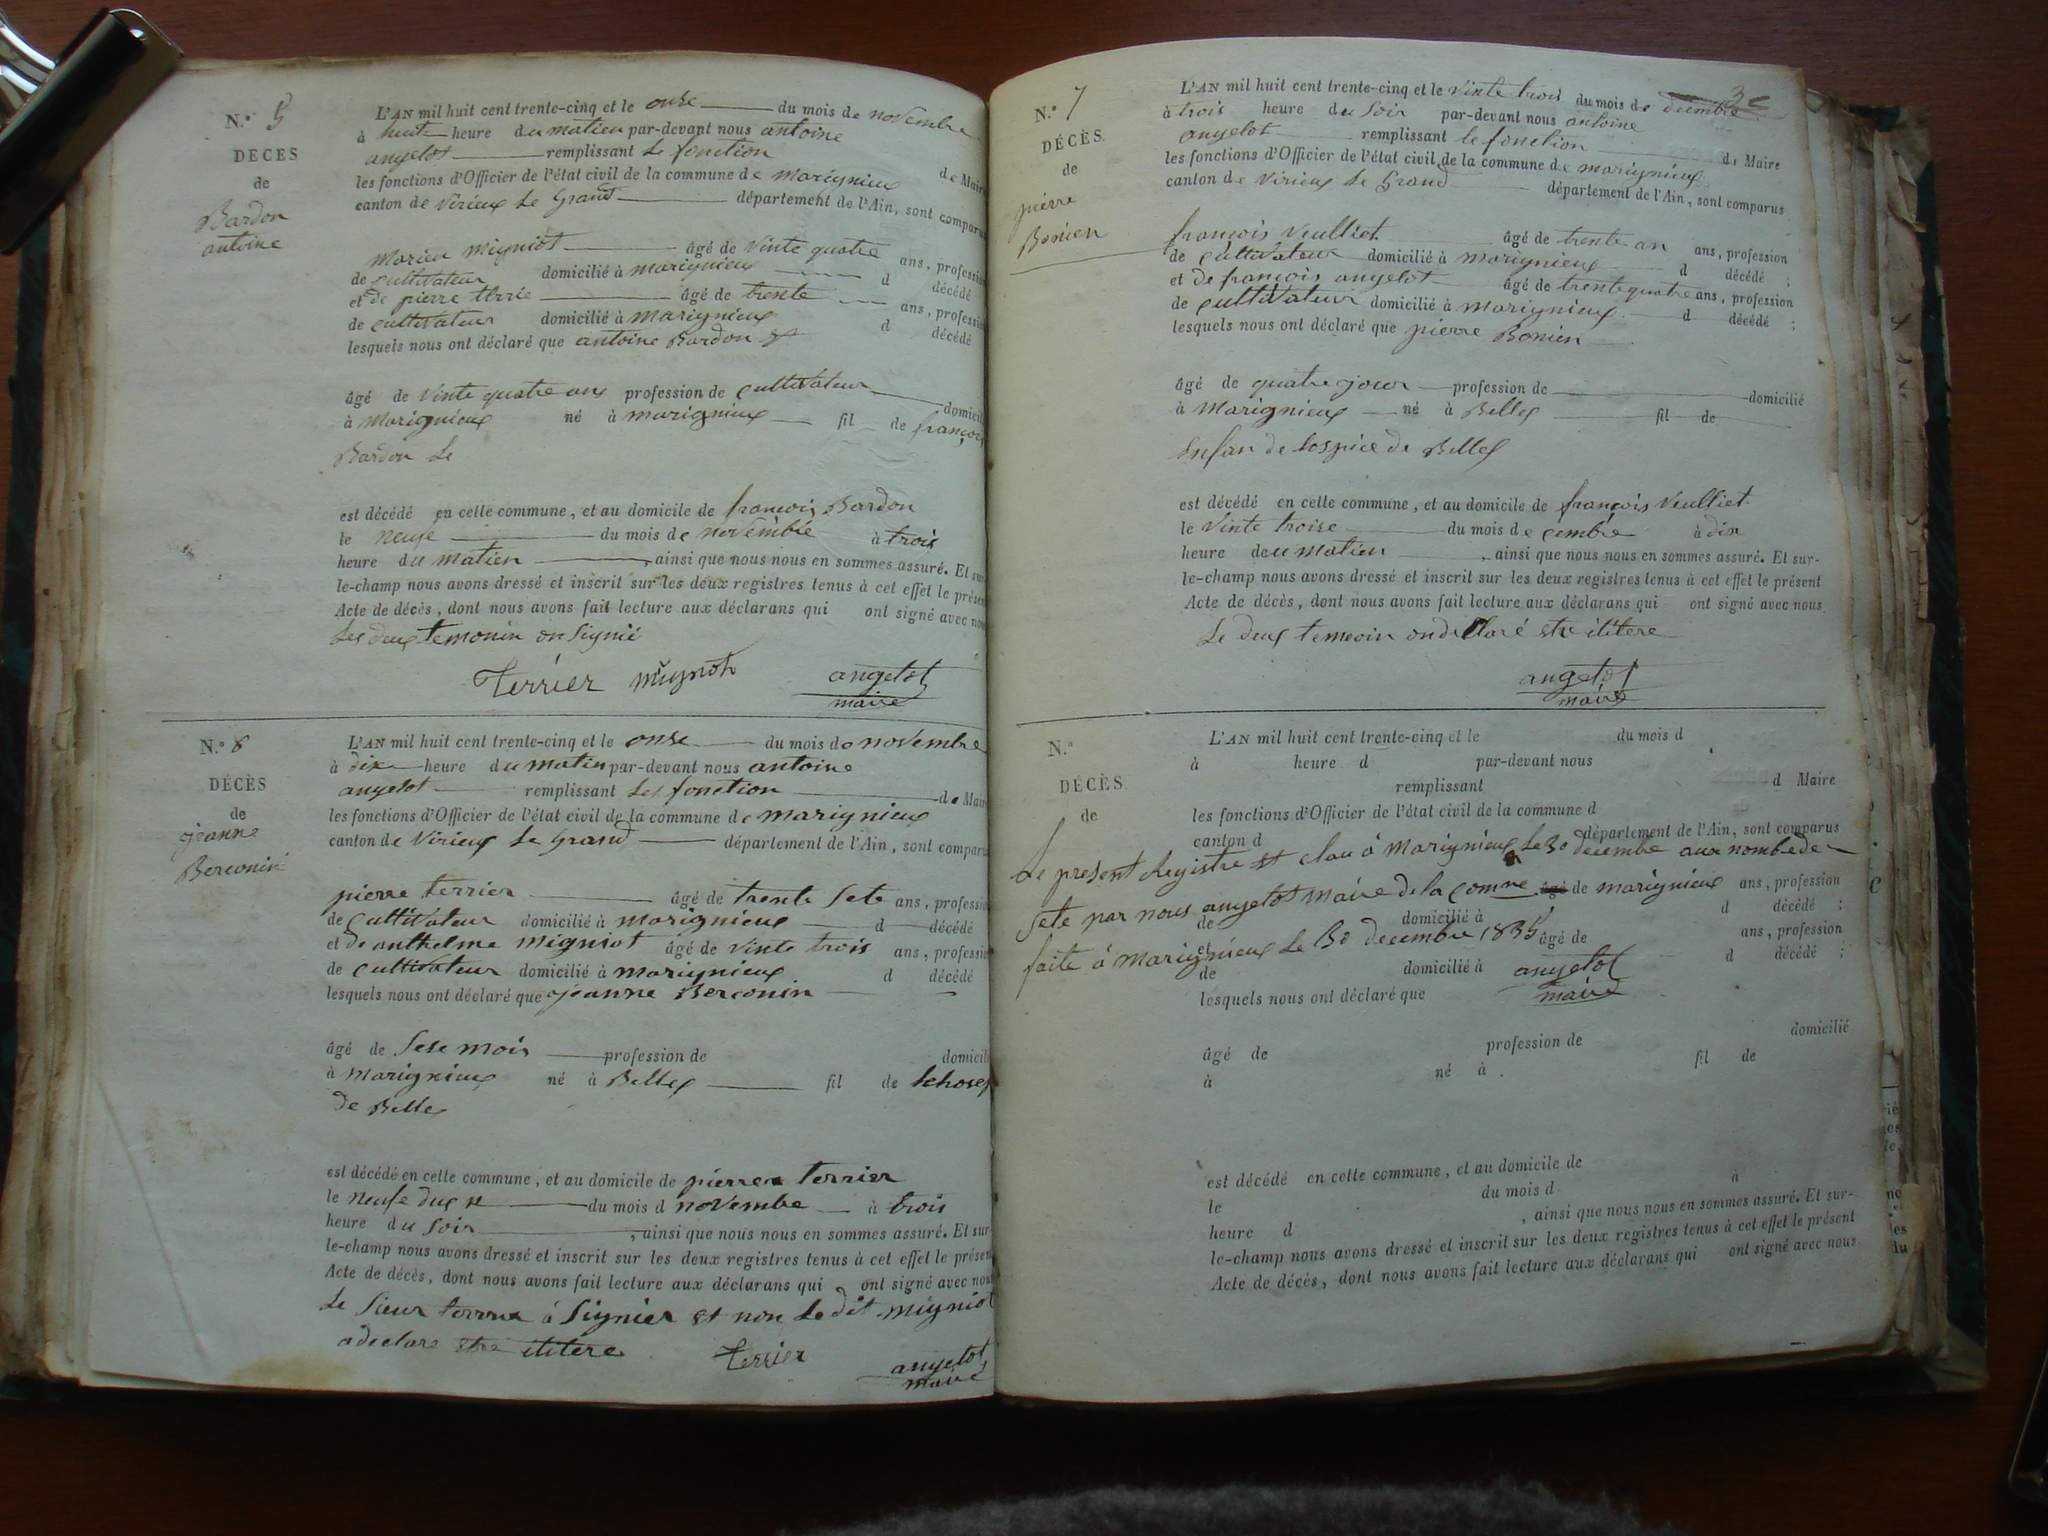 N.o 5
DÉCÈS
de
Bardon
antoine
L'AN mil huit cent trente-cinq et le onse du mois de novembre
à huit heure du matien par-devant nous antoine
angelot remplissant le fonction de Maire
les fonctions d'Officier de l'état civil de la commune de marignieux
canton de Virieux le Grand département de l'Ain, sont comparus
Marien Migniot âgé de vinte quatre ans, profession
de cultivateur domicilié à marignieux d décédé
et de pierre terrié âgé de trente ans, profession
de cultivateur domicilié à marignieux d décédé
lesquels nous ont déclaré que antoine Bardon et
âgé de vinte quatre ans profession de cultivateur domicilié
à Marignieux né à marignieux fil de françois
Bardon le
est décédé en cette commune, et au domicile de francois Bardon
le neufe du mois de novembre à trois
heure du matien, ainsi que nous nous en sommes assuré. Et sur-
le-champ nous avons dressé et inscrit sur les deux registres tenus à cet effet le présent
Acte de décès, dont nous avons fait lecture aux déclarans qui ont signé avec nous
Les deux temonin on Signié
Terrier mignoh angelot
maire
N.o 8
DÉCÈS
de
jeanne
Berconin
L'AN mil huit cent trente-cinq et le onse du mois de novembre
à dix heure du matin par-devant nous antoine
angelot remplissant les fonction de Maire
les fonctions d'Officier de l'état civil de la commune de marignieux
canton de Virieux le Grand département de l'Ain, sont comparus
pierre terrier âgé de trente sete ans, profession
de cultivateur domicilié à marignieux d décédé
et de anthelme migniot âgé de vinte trois ans, profession
de cultivateur domicilié à marignieux d décédé
lesquels nous ont déclaré que jeanne Berconin
âgé de sese mois profession de domicilié
à Marignieux né à Belley fil de
de Belley
est décédé en cette commune, et au domicile de pierre terrier
le neufe du mois d novembre à trois
heure du soir, ainsi que nous nous en sommes assuré. Et sur-
le-champ nous avons dressé et inscrit sur les deux registres tenus à cet effet le présent
Acte de décès, dont nous avons fait lecture aux déclarans qui ont signé avec nous
le sieur à Signier et non le dit migniot
a declare etre ilitere Terrier angelot
maire
3
N.o 7
DÉCÈS
de
pierre
Bonien
L'AN mil huit cent trente-cinq et le vinte trois du mois de decembre
à trois heure du soir par-devant nous antoine
angelot remplissant le fonction de Maire
les fonctions d'Officier de l'état civil de la commune de marignieux
canton de Virieux le Grand département de l'Ain, sont comparus
françois Veulliet âgé de trente an ans, profession
de cultivateur domicilié à marignieux d décédé ;
et de françois angelot âgé de trente quatre ans, profession
de cultivateur domicilié à marignieux d décédé ;
lesquels nous ont déclaré que pierre Bonien
âgé de quatre jour profession de domicilié
à Marignieux né à Belley fil de
enfan de lospice de Belley
est décédé en cette commune, et au domicile de françois Veulliet
le vinte troise du mois de cembre à dix
heure deu matien, ainsi que nous nous en sommes assuré. Et sur-
le-champ nous avons dressé et inscrit sur les deux registres tenus à cet effet le présent
Acte de décès, dont nous avons fait lecture aux déclarans qui ont signé avec nous
Le deux temeoin on déclaré etre ilitere
angelot
maire
N.o
DÉCÈS
de
L'AN mil huit cent trente-cinq et le du mois d
à heure d par-devant nous
remplissant d Maire
les fonctions d'Officier de l'état civil de la commune d
canton d département de l'Ain, sont comparus
Le present Registre et clau à Marignieux le 30 decembre aux nombe de
âgé de ans, profession
sete par nous angelot maire de la comne de marignieux
de domicilié à d décédé ;
et âgé de ans, profession
faite à marignieux le 30 decembre 1835
de domicilié à d décédé ;
angelot
maire
lesquels nous ont déclaré que
âgé de profession de domicilié
à né à fil de
est décédé en cette commune, et au domicile de
le du mois d à
heure d , ainsi que nous nous en sommes assuré. Et sur-
le-champ nous avons dressé et inscrit sur les deux registres tenus à cet effet le présent
Acte de décès, dont nous avons fait lecture aux déclarans qui ont signé avec nous